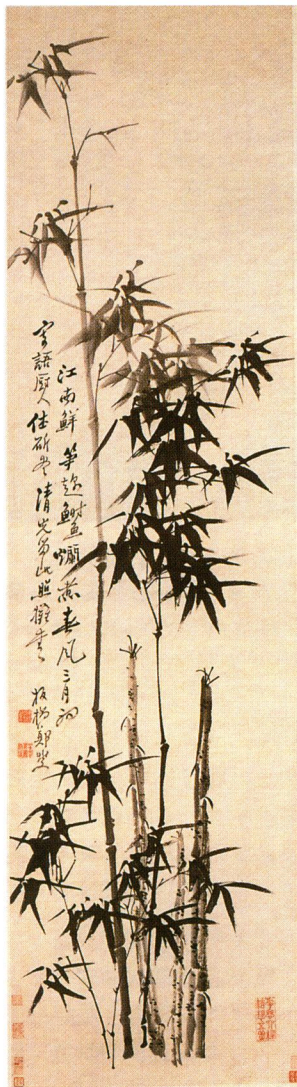 江南鮮笋趁鰣魚爛煮春風三月初
寄語厨人休斫盡清光留此照攤書
板橋鄭燮